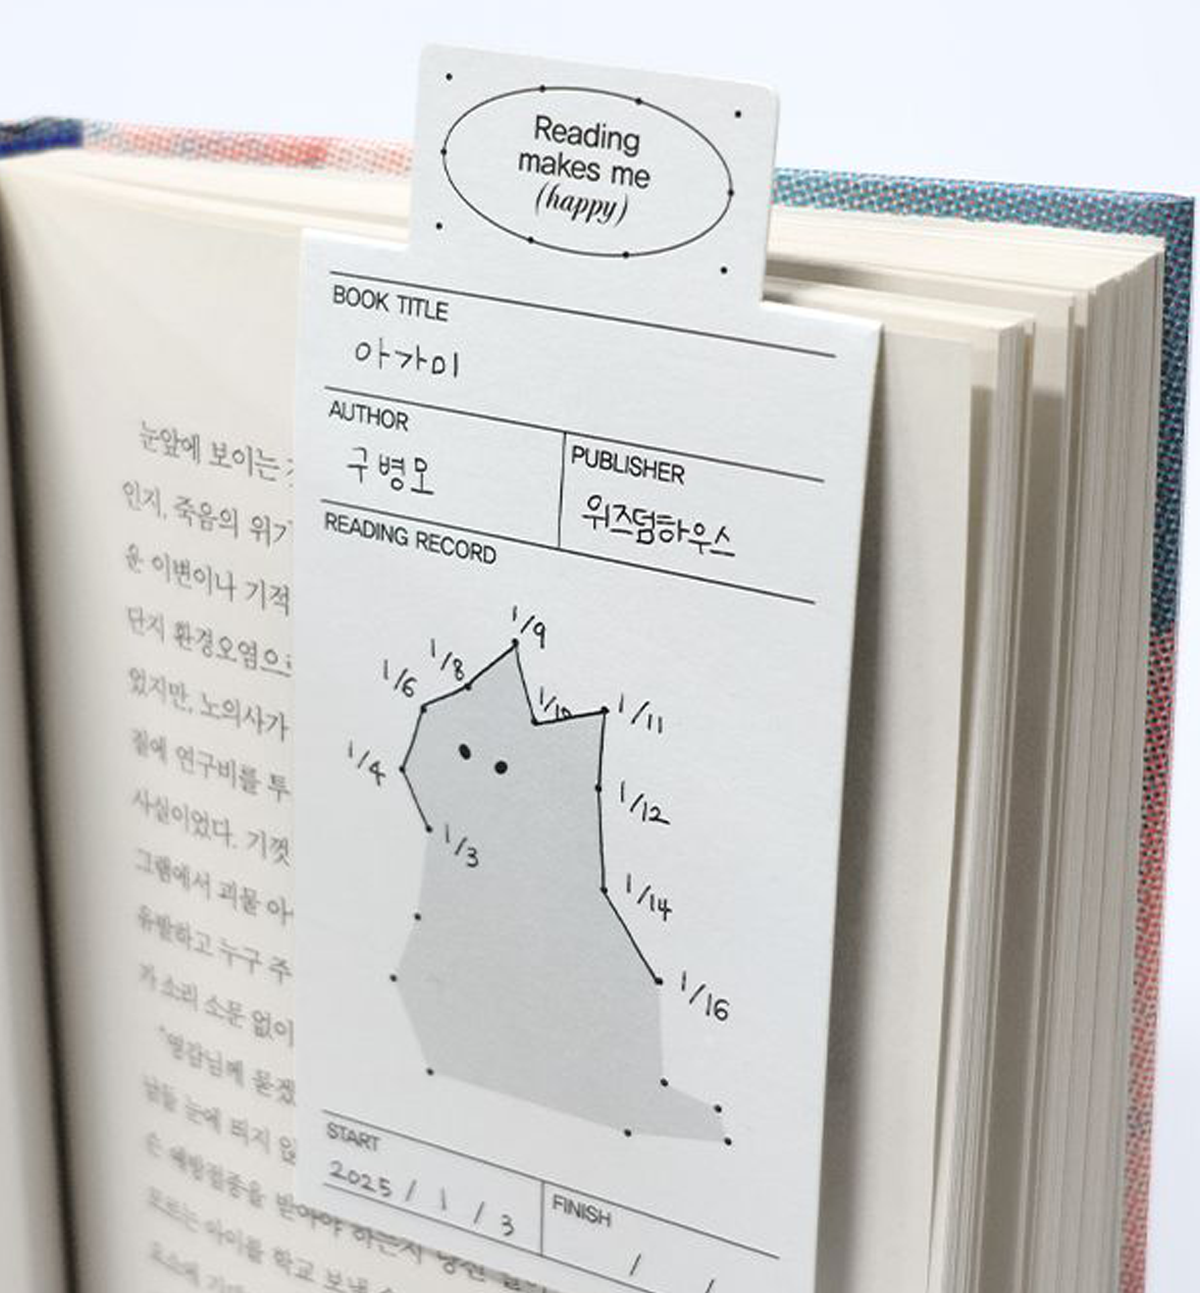 Reading
makes me
(happy)
BOOK TITLE
아가미
AUTHOR
구병모
PUBLISHER
위즈덤하우스
READING RECORD
1/9
1/8
1/6
1/10
1/11
1/4
1/12
1/3
1/14
1/16
START
2025 / 1 / 3
FINISH
/ /
눈앞에 보이는
인지, 죽음의 위기
운 이변이나 기적
단지 환경오염으로
있지만, 노의사가
질에 연구비를 투
사실이었다. 기껏
그램에서 괴물 아
유발하고 누구 주
가 소리 소문 없이
"영감님께 묻겠
남들 눈에 띄지 않
는 예방접종을 받아야 하는지
모르는 아이를 학교 보낼